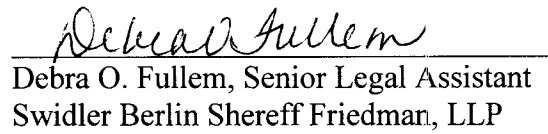 Debra O. Fullem
Debra O. Fullem, Senior Legal Assistant
Swidler Berlin Shereff Friedman, LLP